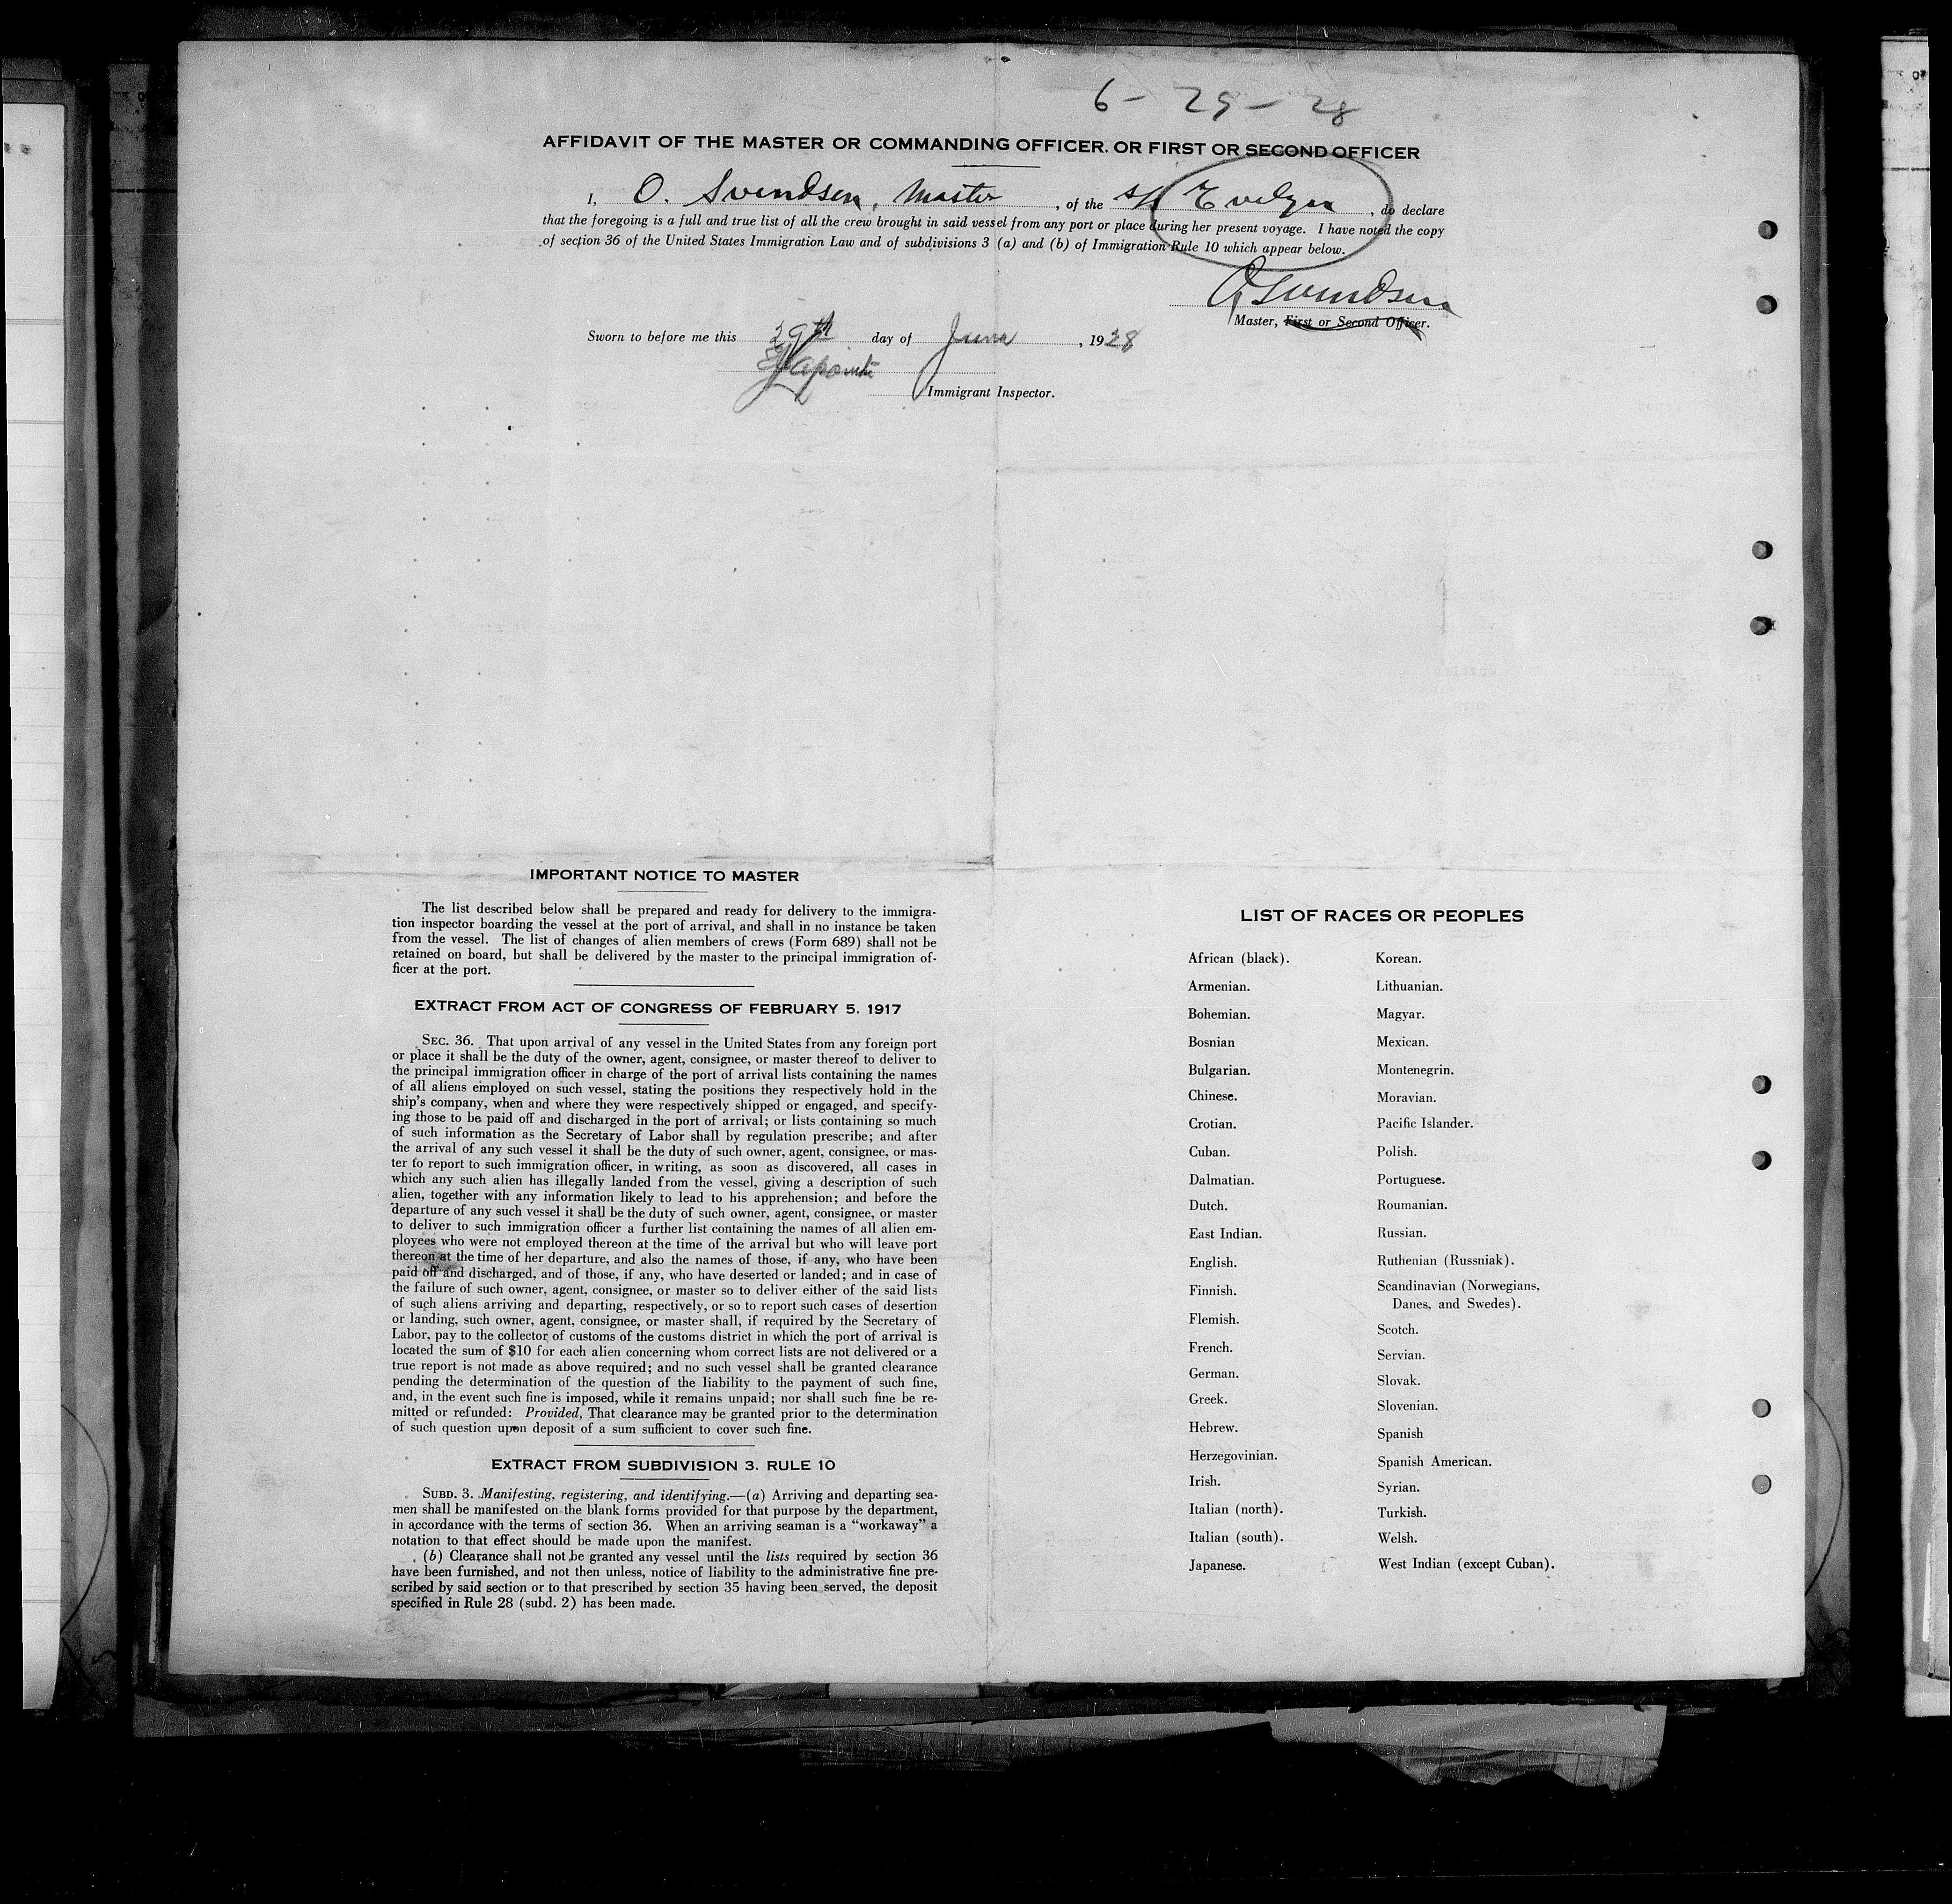 6 - 29 - 28
AFFIDAVIT OF THE MASTER OR COMMANDING OFFICER, OR FIRST OR SECOND OFFICER
I, O. Svendsen, Master, of the S/S Evelyn, do declare
that the foregoing is a full and true list of all the crew brought in said vessel from any port or place during her present voyage. I have noted the copy
of section 36 of the United States Immigration Law and of subdivisions 3 (a) and (b) of Immigration Rule 10 which appear below.
O Svendsen
Master, First or Second Officer.
Sworn to before me this 29th day of June, 1928
Immigrant Inspector.
IMPORTANT NOTICE TO MASTER
The list described below shall be prepared and ready for delivery to the immigra-
tion inspector boarding the vessel at the port of arrival, and shall in no instance be taken
from the vessel. The list of changes of alien members of crews (Form 689) shall not be
retained on board, but shall be delivered by the master to the principal immigration of-
ficer at the port.
EXTRACT FROM ACT OF CONGRESS OF FEBRUARY 5, 1917
SEC. 36. That upon arrival of any vessel in the United States from any foreign port
or place it shall be the duty of the owner, agent, consignee, or master thereof to deliver to
the principal immigration officer in charge of the port of arrival lists containing the names
of all aliens employed on such vessel, stating the positions they respectively hold in the
ship's company, when and where they were respectively shipped or engaged, and specify-
ing those to be paid off and discharged in the port of arrival; or lists containing so much
of such information as the Secretary of Labor shall by regulation prescribe; and after
the arrival of any such vessel it shall be the duty of such owner, agent, consignee, or mas-
ter to report to such immigration officer, in writing, as soon as discovered, all cases in
which any such alien has illegally landed from the vessel, giving a description of such
alien, together with any information likely to lead to his apprehension; and before the
departure of any such vessel it shall be the duty of such owner, agent, consignee, or master
to deliver to such immigration officer a further list containing the names of all alien em-
ployees who were not employed thereon at the time of the arrival but who will leave port
thereon at the time of her departure, and also the names of those, if any, who have been
paid off and discharged, and of those, if any, who have deserted or landed; and in case of
the failure of such owner, agent, consignee, or master so to deliver either of the said lists
of such aliens arriving and departing, respectively, or so to report such cases of desertion
or landing, such owner, agent, consignee, or master shall, if required by the Secretary of
Labor, pay to the collector of customs of the customs district in which the port of arrival is
located the sum of $10 for each alien concerning whom correct lists are not delivered or a
true report is not made as above required; and no such vessel shall be granted clearance
pending the determination of the question of the liability to the payment of such fine,
and, in the event such fine is imposed, while it remains unpaid; nor shall such fine be re-
mitted or refunded: Provided, That clearance may be granted prior to the determination
of such question upon deposit of a sum sufficient to cover such fine.
EXTRACT FROM SUBDIVISION 3, RULE 10
SUBD. 3. Manifesting, registering, and identifying.—(a) Arriving and departing sea-
men shall be manifested on the blank forms provided for that purpose by the department,
in accordance with the terms of section 36. When an arriving seaman is a "workaway" a
notation to that effect should be made upon the manifest.
(b) Clearance shall not be granted any vessel until the lists required by section 36
have been furnished, and not then unless, notice of liability to the administrative fine pre-
scribed by said section or to that prescribed by section 35 having been served, the deposit
specified in Rule 28 (subd. 2) has been made.
LIST OF RACES OR PEOPLES
African (black).
Armenian.
Bohemian.
Bosnian
Bulgarian.
Chinese.
Crotian.
Cuban.
Dalmatian.
Dutch.
East Indian.
English.
Finnish.
Flemish.
French.
German.
Greek.
Hebrew.
Herzegovinian.
Irish.
Italian (north).
Italian (south).
Japanese.
Korean.
Lithuanian.
Magyar.
Mexican.
Montenegrin.
Moravian.
Pacific Islander.
Polish.
Portuguese.
Roumanian.
Russian.
Ruthenian (Russniak).
Scandinavian (Norwegians,
Danes, and Swedes).
Scotch.
Servian.
Slovak.
Slovenian.
Spanish
Spanish American.
Syrian.
Turkish.
Welsh.
West Indian (except Cuban).